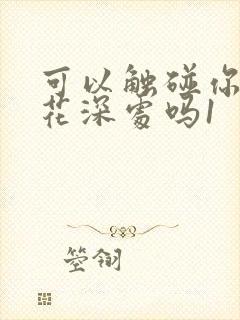 可以触碰你
花深处吗1
箜翎